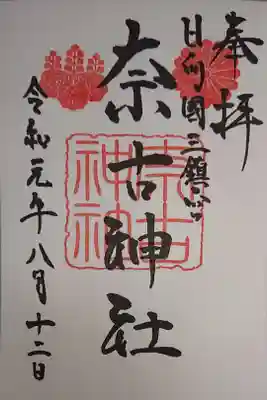 奉拝
日向國三鎮宮
奈古神社
奈古
神社
令和元年八月十二日